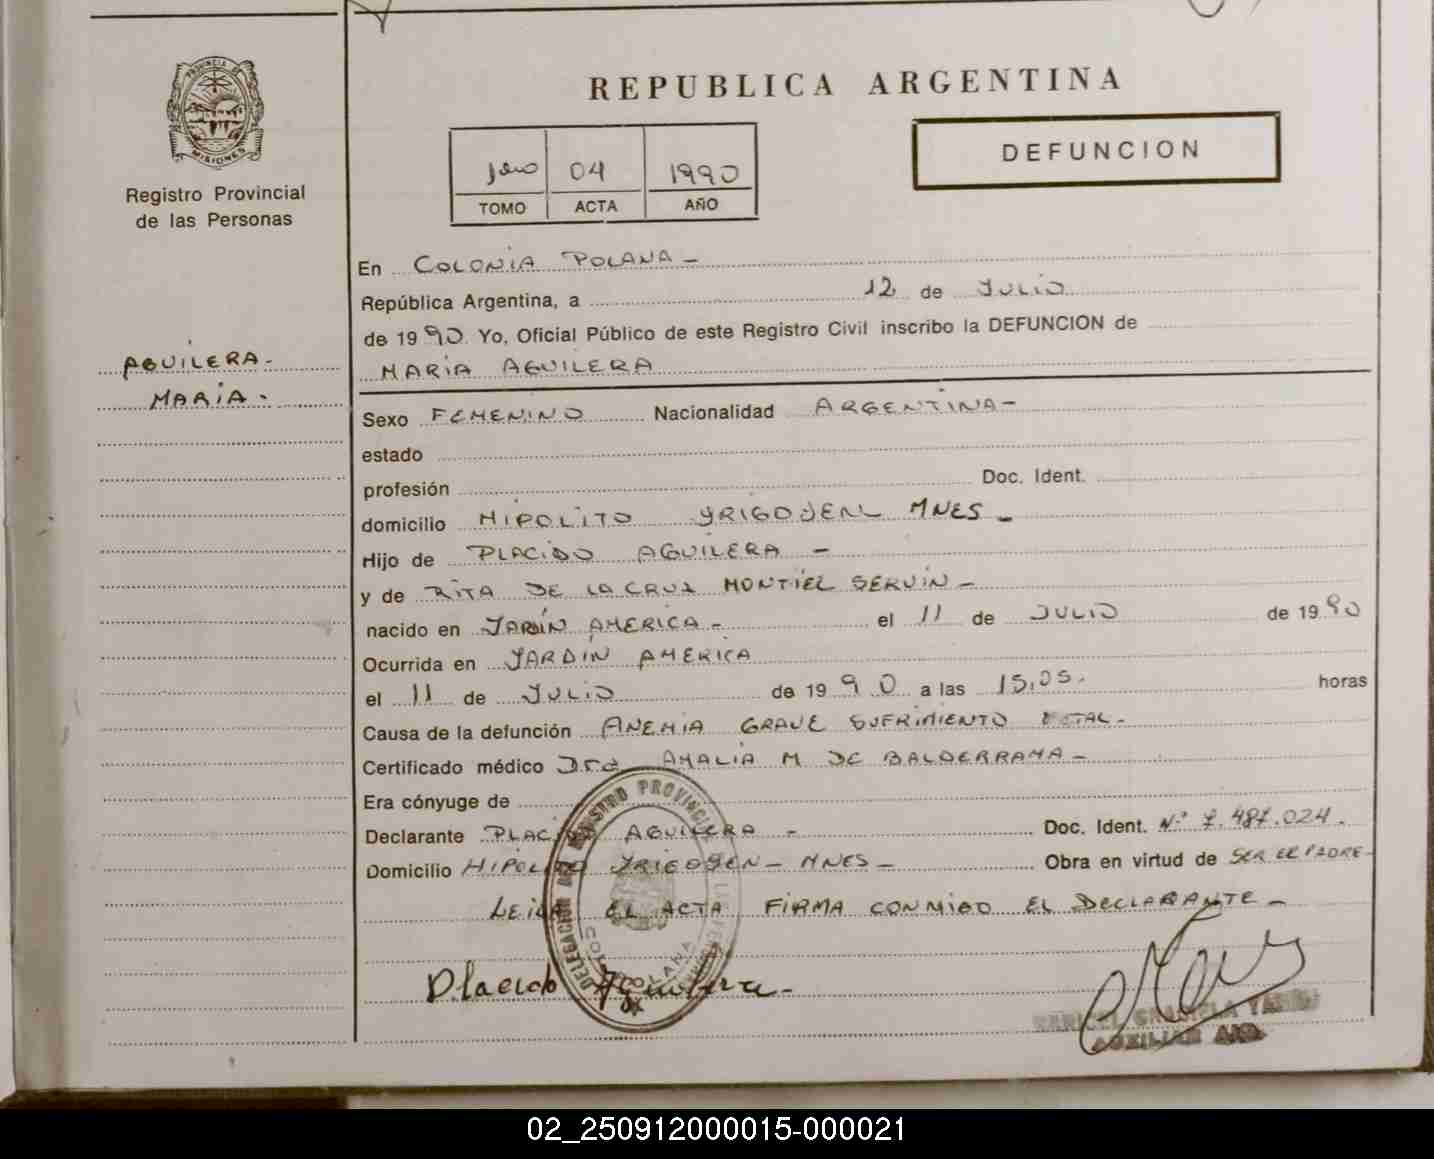 PROVINCIA DE
MISIONES
Registro Provincial
de las Personas
AGUILERA -
MARIA -
REPUBLICA ARGENTINA
DEFUNCION
04 1990
TOMO ACTA AÑO
En COLONIA POLANA -
República Argentina, a 12 de JULIO
de 1990. Yo, Oficial Público de este Registro Civil inscribo la DEFUNCION de
MARIA AGUILERA
Sexo FEMENINO Nacionalidad ARGENTINA -
estado
profesión Doc. Ident.
domicilio HIPOLITO MNES -
Hijo de PLACIDO AGUILERA -
y de RITA DE LA CRUZ MONTIEL SERVIN -
nacido en AMERICA - el 11 de JULIO de 1990
Ocurrida en JARDIN AMERICA
el 11 de JULIO de 1990 a las 15,05. horas
Causa de la defunción ANEMIA GRAVE SUFRIMIENTO FETAL -
Certificado médico Dra AMALIA M DE BALDERRAMA -
Era cónyuge de
Declarante PLACIDO AGUILERA - Doc. Ident. Nº 7.487.024.
Domicilio HIPOLITO YRIGOYEN - MNES - Obra en virtud de SER EL PADRE -
LEIDA EL ACTA FIRMA CONMIGO EL DECLARANTE -
Placido Aguilera -
DELEGACION DEL REGISTRO PROVINCIAL DE LAS PERSONAS
COL. POLANA
AUXILIAR
02_250912000015-000021